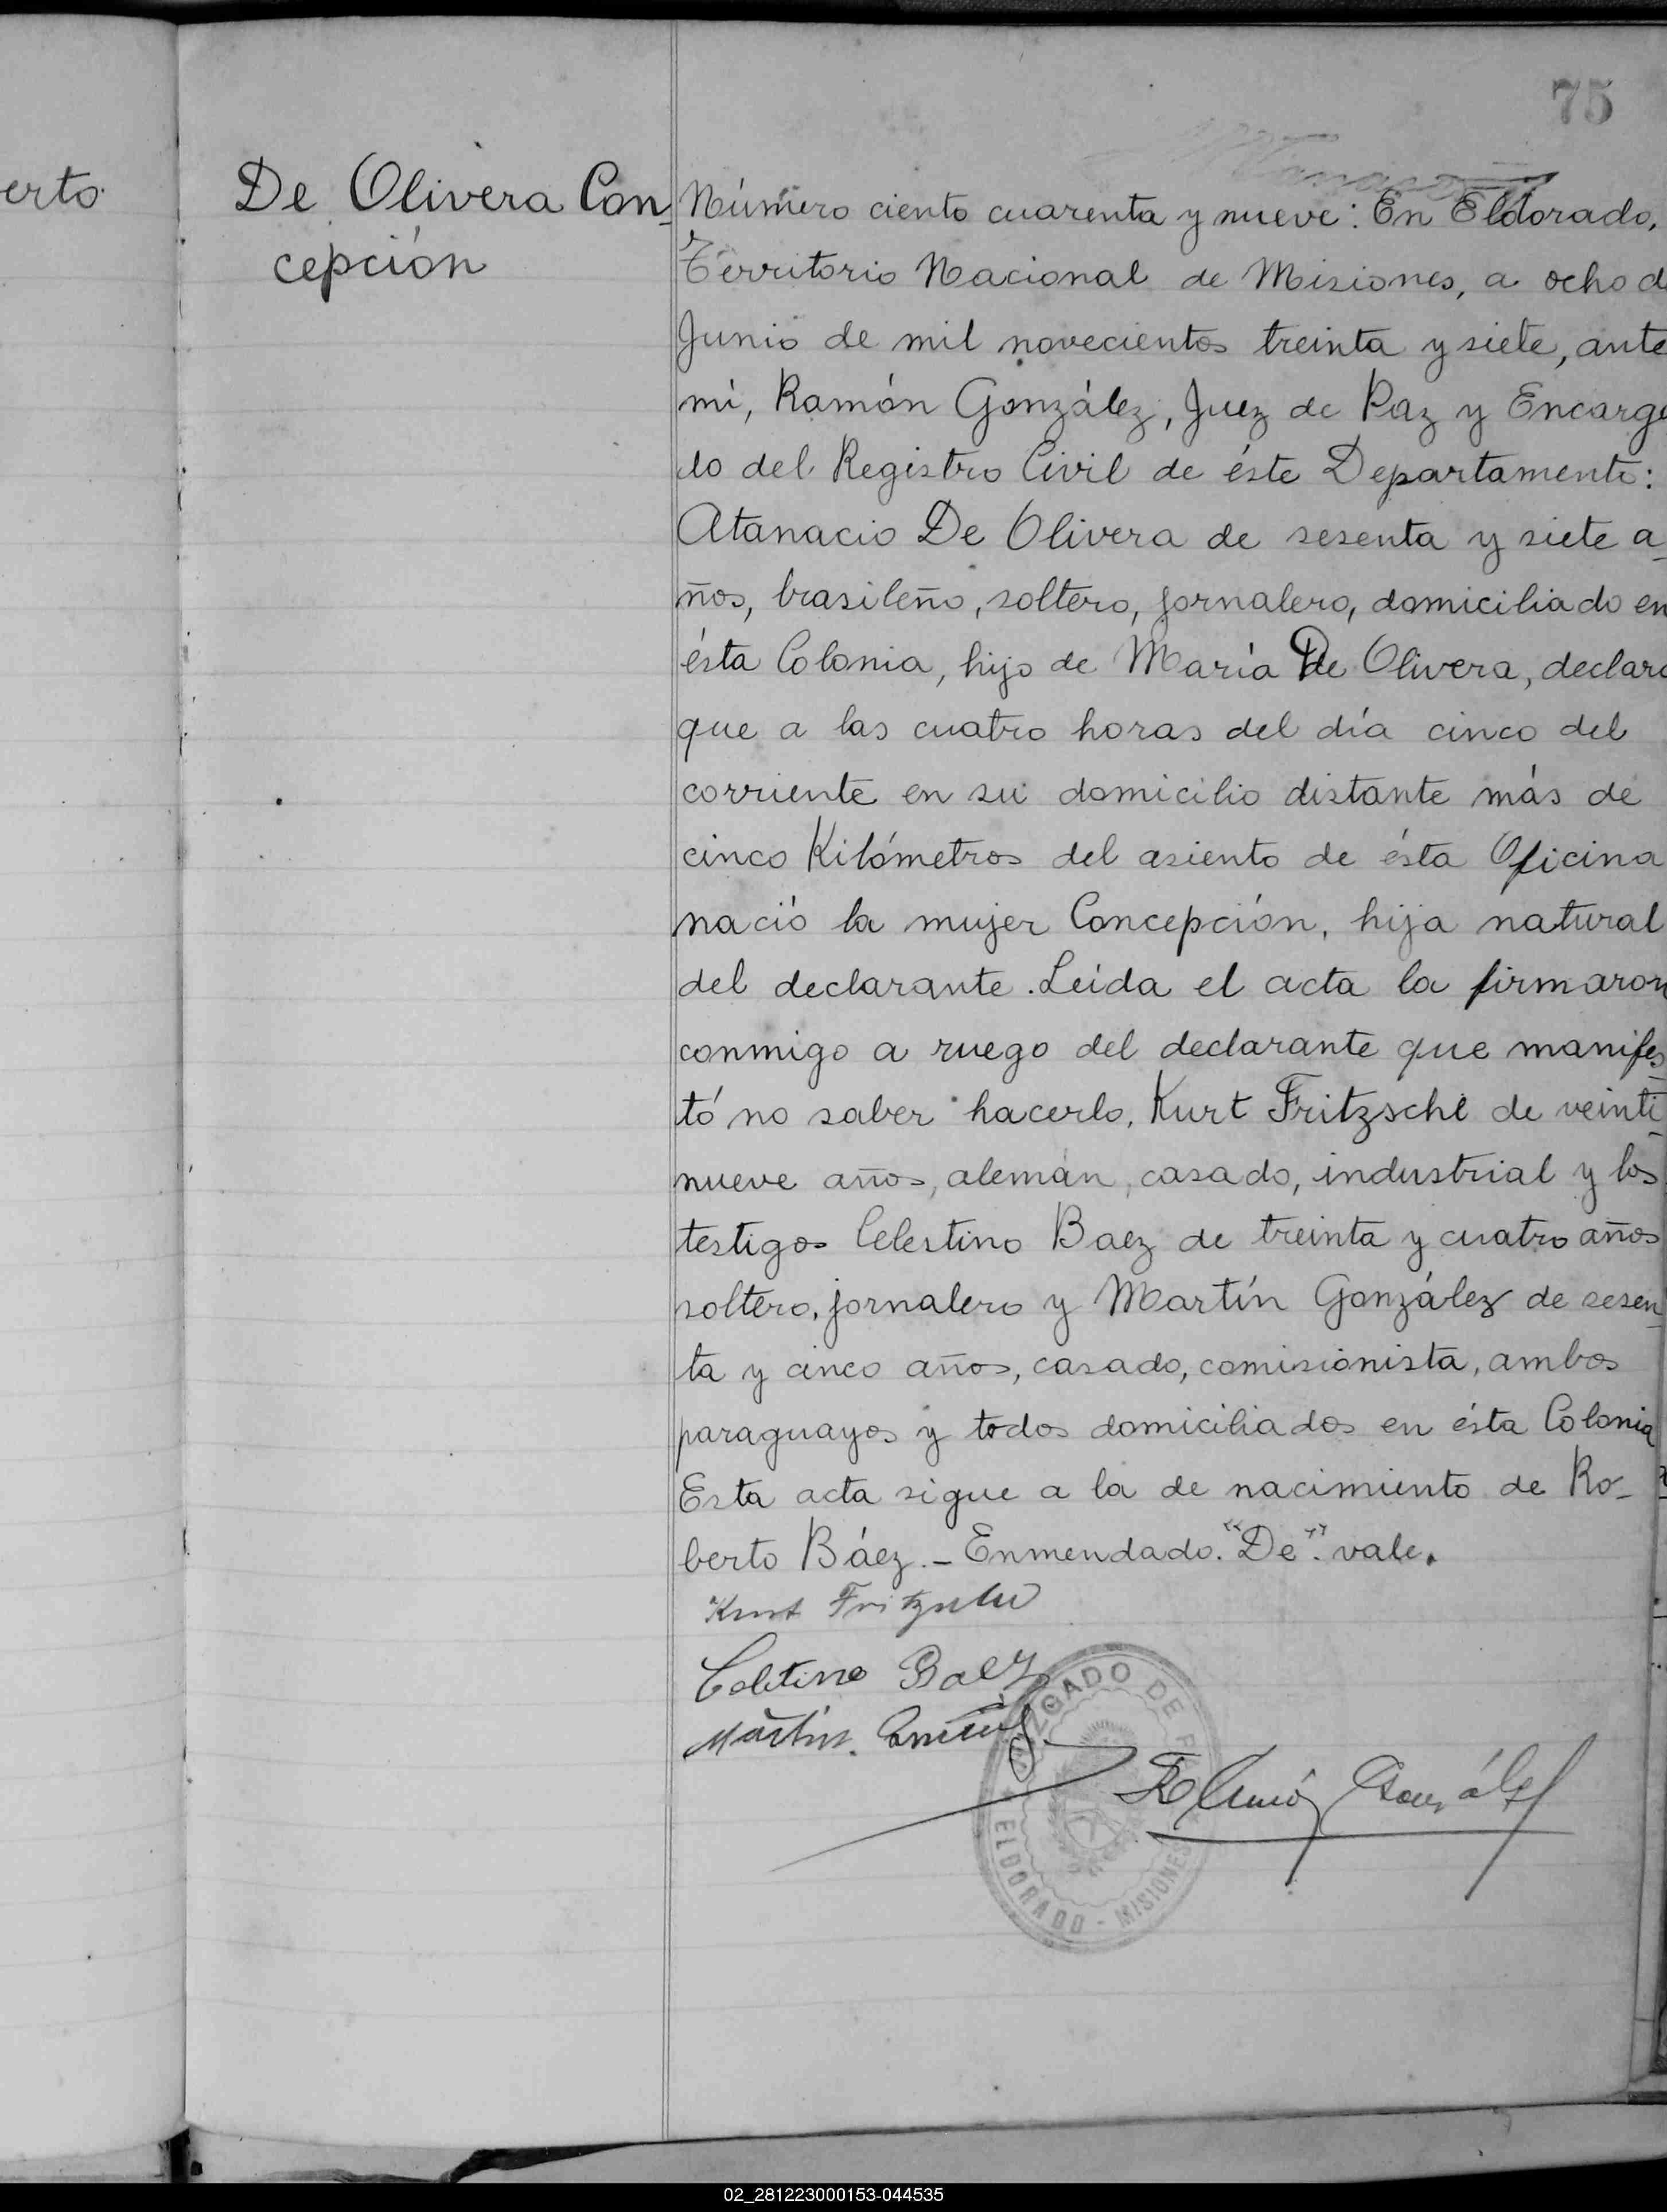 75
erto
De Olivera Con_
cepción
Número ciento cuarenta y nueve: En Eldorado,
Territorio Nacional de Misiones, a ocho d
Junio de mil novecientos treinta y siete, ante
mí, Ramón González, Juez de Paz y Encarga
do del Registro Civil de éste Departamento:
Atanacio De Olivera de sesenta y siete a_
ños, brasileño, soltero, jornalero, domiciliado en
ésta Colonia, hijo de María De Olivera, declaró
que a las cuatro horas del día cinco del
corriente en su domicilio distante más de
cinco Kilómetros del asiento de ésta Oficina
nació la mujer Concepción, hija natural
del declarante. Leída el acta la firmaron
conmigo a ruego del declarante que manifes_
tó no saber hacerlo, Kurt Fritzsche de veinti_
nueve años, alemán, casado, industrial y los
testigos Celestino Baez de treinta y cuatro años
soltero, jornalero y Martín González de sesen_
ta y cinco años, casado, comisionista, ambos
paraguayos y todos domiciliados en ésta Colonia
Esta acta sigue a la de nacimiento de Ro_
berto Báez._ Enmendado. "De". vale.
Kurt Fritzsche
Celetino Baez
Martin
Ramón González
JUZGADO DE PAZ
ELDORADO - MISIONES
02_281223000153-044535